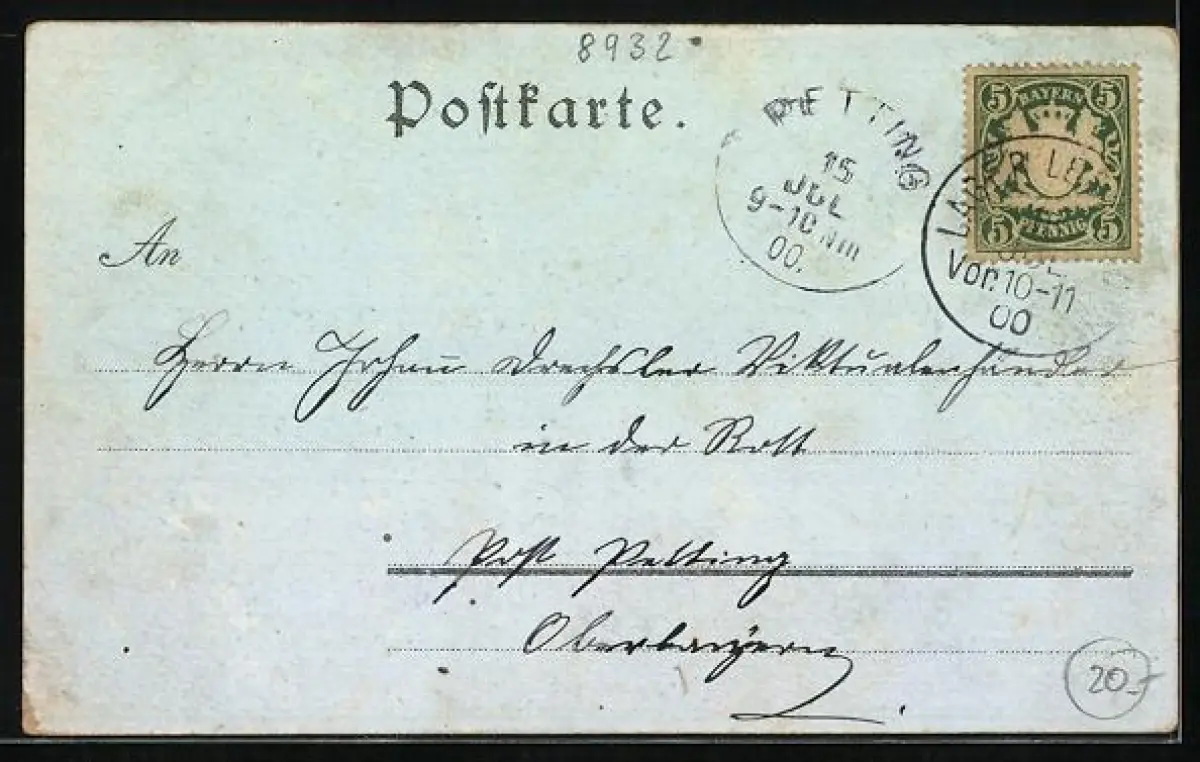 8932
Postkarte.
PETTING
15
JUL
9-10 Nm
00.
5 BAYERN 5
5 PFENNIG 5
JUL
Vor. 10-11
00
An
Herrn Johann Drechsler Viktualienhändler
in der Rott
Post Petting
Oberbayern
20.-